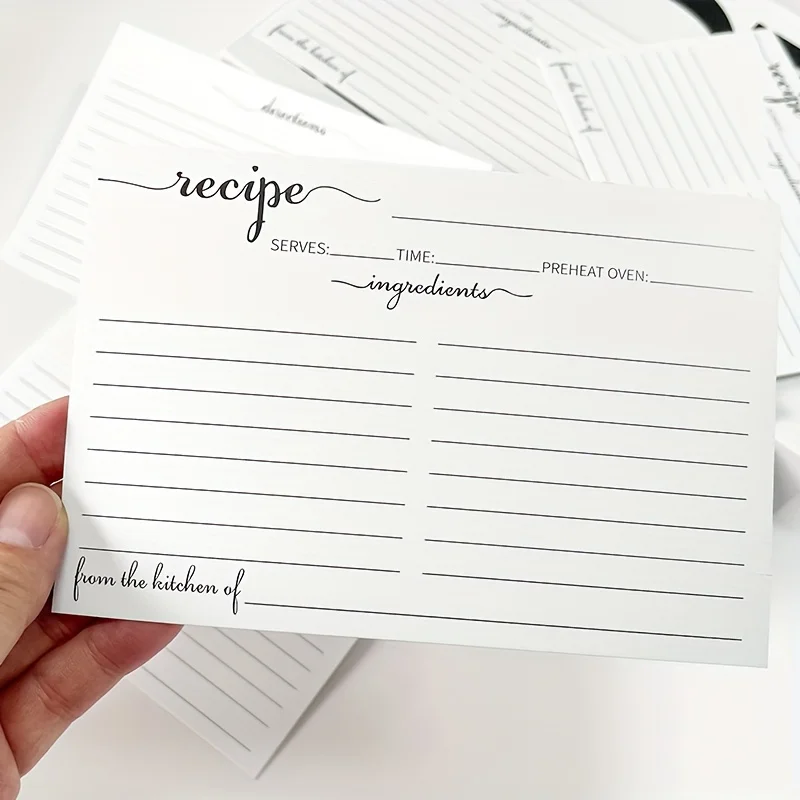 directions
ingredients
from the kitchen of
from the kitchen of
recipe
recipe
SERVES: TIME: PREHEAT OVEN:
ingredients
from the kitchen of